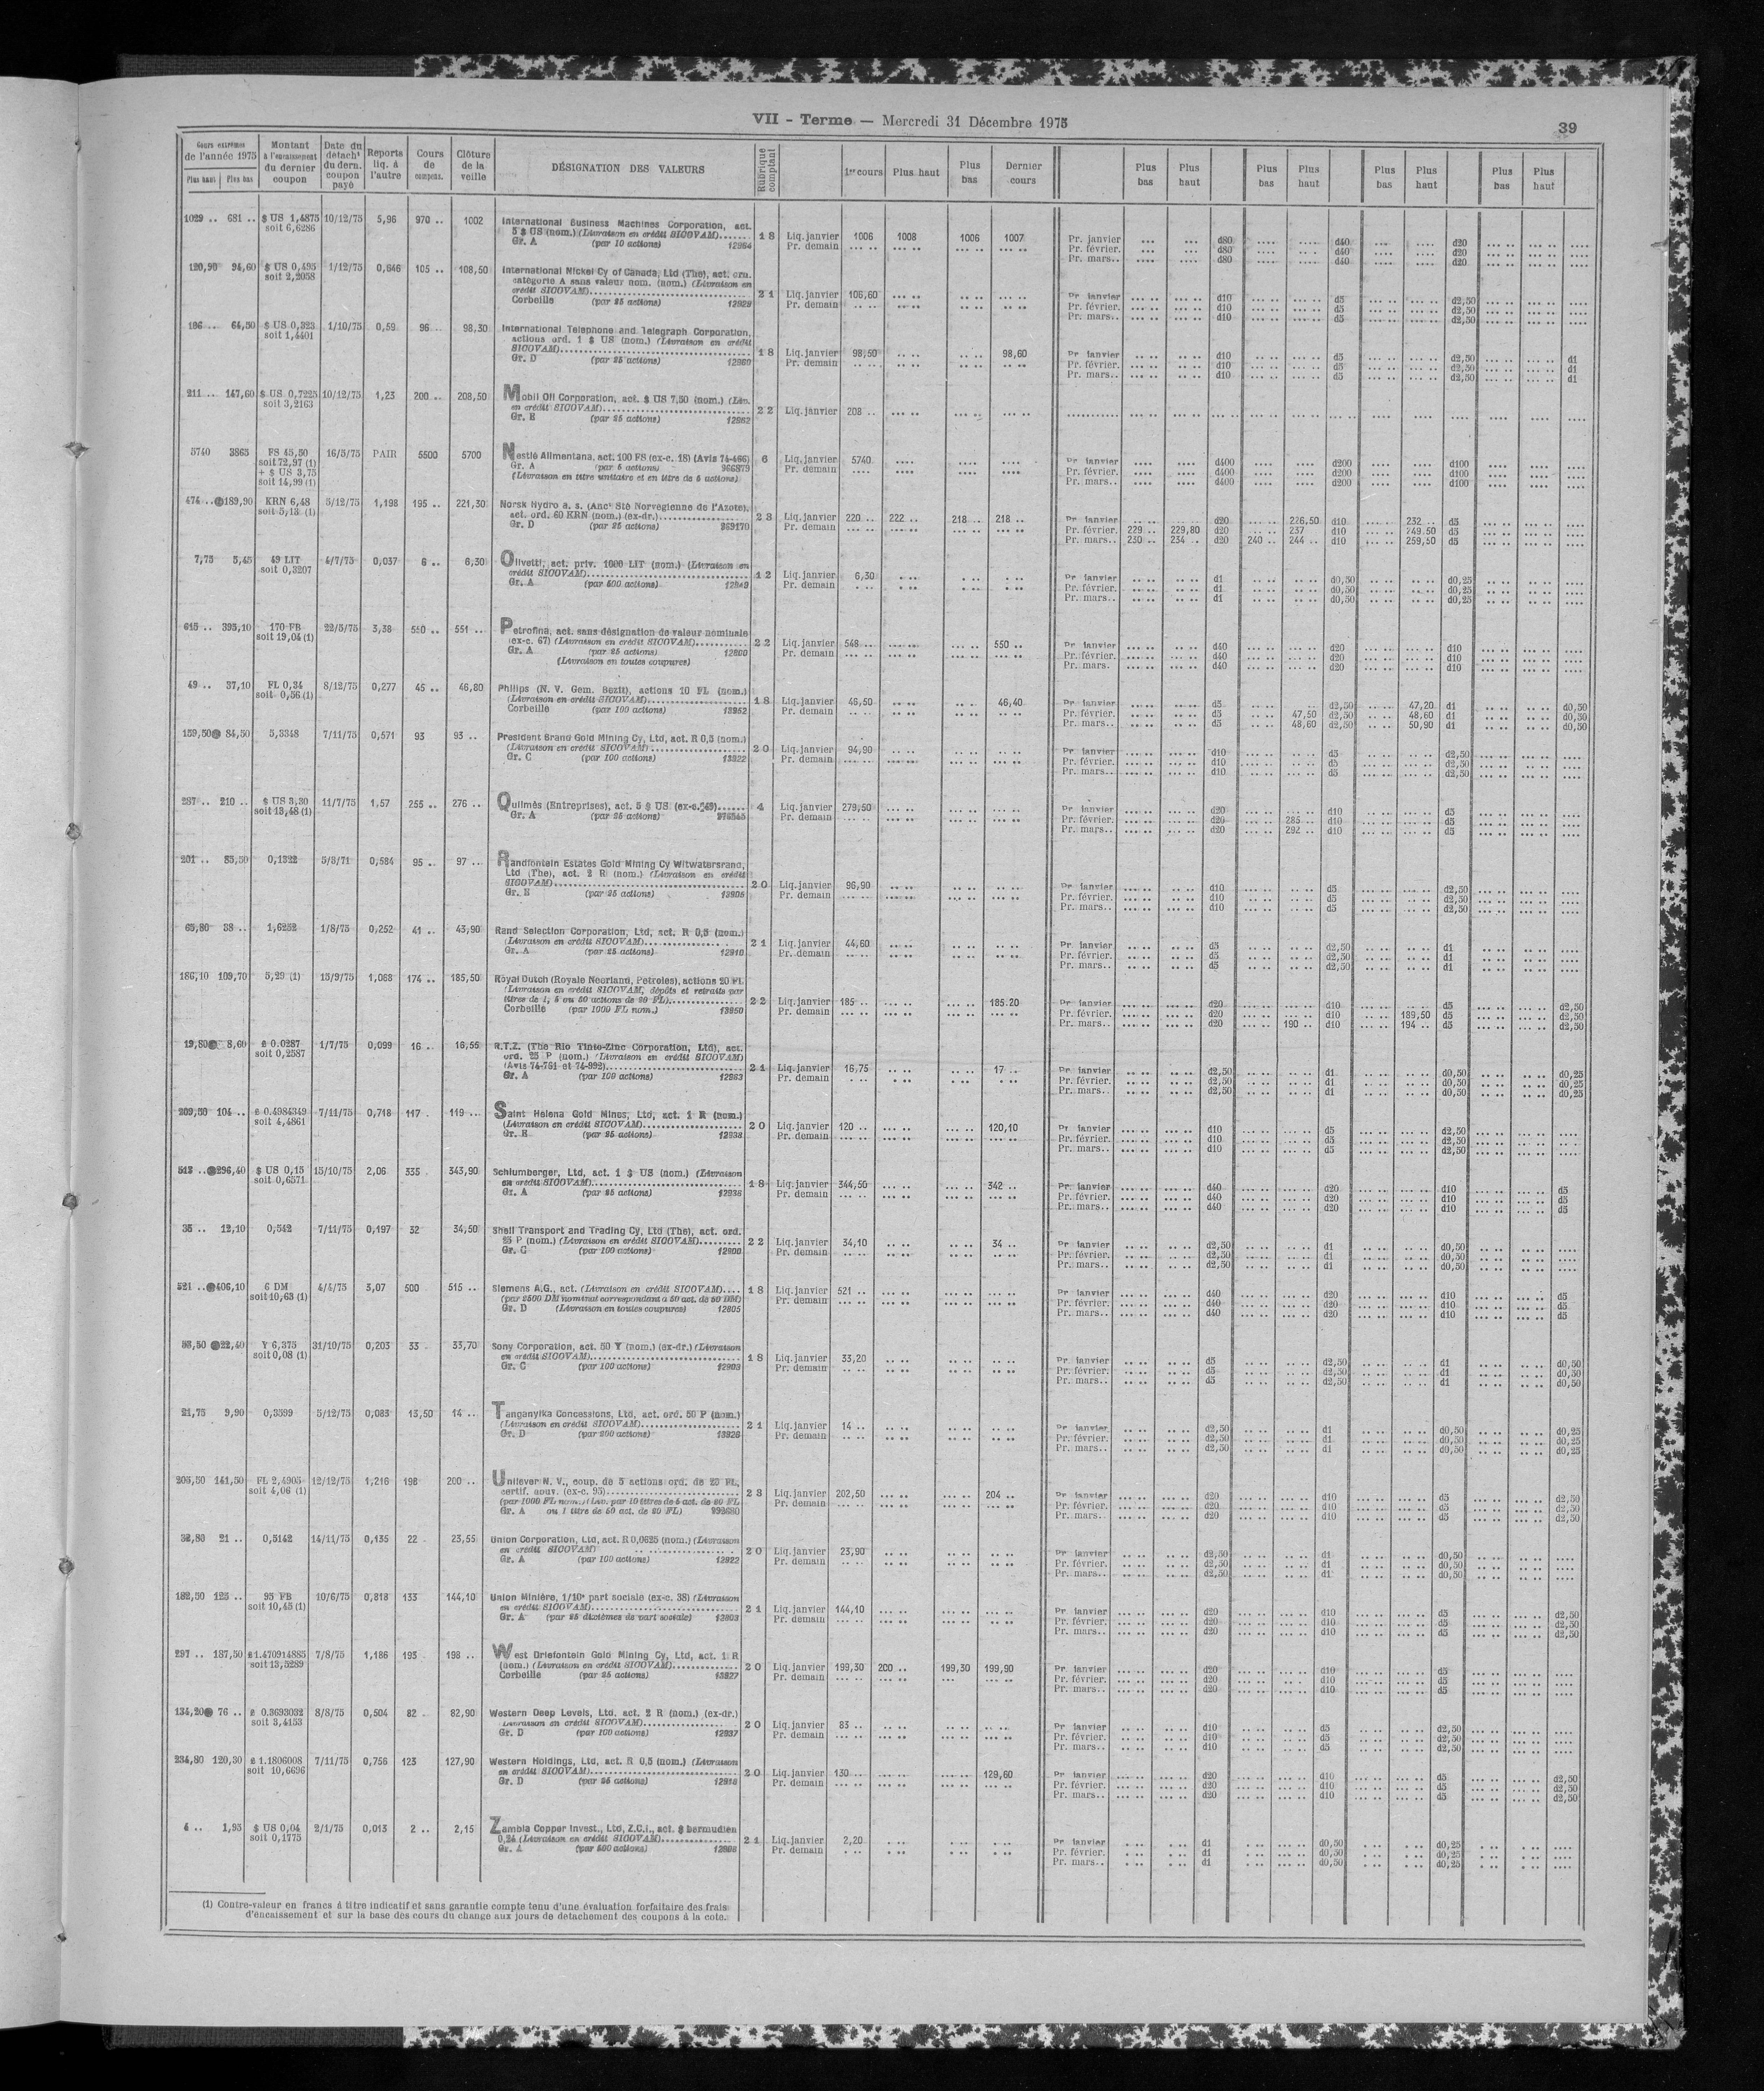 VII - Terme — Mercredi 31 Décembre 1975
39
Cours extrêmes de l'année 1975 Plus haut Plus bas | Montant à l'encaissement du dernier coupon | Date du détach' du dern. coupon payé | Reports liq. à l'autre | Cours de compens. | Clôture de la veille | DÉSIGNATION DES VALEURS | Rubrique comptant | 1er cours | Plus haut | Plus bas | Dernier cours | Plus bas | Plus haut | Plus bas | Plus haut | Plus bas | Plus haut | Plus bas | Plus haut
1029 .. 681 .. $ US 1,4875 10/12/75 5,96 970 .. 1002 International Business Machines Corporation, act.
soit 6,6286 5 $ US (nom.) (Livraison en crédit SICOVAM)....... 18 Liq. janvier 1006 1008 1006 1007 Pr. janvier d80 d40 d20
Gr. A (par 10 actions) 12984 Pr. demain Pr. février. d80 d40 d20
Pr. mars.. d80 d40 d20
120,90 94,60 $ US 0,495 1/12/75 0,646 105 .. 108,50 International Nickel Cy of Canada, Ltd (The), act. orn.
soit 2,2058 catégorie A sans valeur nom. (nom.) (Livraison en
crédit SICOVAM) 21 Liq. janvier 106,60 Pr. janvier d10 d5 d2,50
Corbeille (par 25 actions) 12929 Pr. demain Pr. février. d10 d5 d2,50
Pr. mars.. d10 d5 d2,50
106 .. 64,50 $ US 0,323 1/10/75 0,59 96 98,30 International Telephone and Telegraph Corporation,
soit 1,4401 actions ord. 1 $ US (nom.) (Livraison en crédit
SICOVAM) 18 Liq. janvier 98,50 98,60 Pr. janvier d10 d5 d2,50 d1
Gr. D (par 25 actions) 12960 Pr. demain Pr. février. d10 d5 d2,50 d1
Pr. mars.. d10 d5 d2,50 d1
211 .. 147,60 $ US 0,7225 10/12/75 1,23 200 .. 208,50 Mobil Oil Corporation, act. $ US 7,50 (nom.) (Liv.
soit 3,2163 en crédit SICOVAM) 22 Liq. janvier 208 ..
Gr. E (par 25 actions) 12962
5740 3865 FS 45,50 16/5/75 PAIR 5500 5700 Nestlé Alimentana, act. 100 FS (ex-c. 18) (Avis 74-466) 6 Liq. janvier 5740 Pr. janvier d400 d200 d100
soit 72,97 (1) Gr. A (par 5 actions) 966879 Pr. demain Pr. février. d400 d200 d100
+ $ US 3,75 (Livraison en titre unitaire et en titre de 5 actions) Pr. mars.. d400 d200 d100
soit 14,99 (1)
474 .. 189,90 KRN 6,48 5/12/75 1,198 195 .. 221,30 Norsk Hydro a. s. (Anc' Sté Norvégienne de l'Azote),
soit 5,13 (1) act. ord. 60 KRN (nom.) (ex-dr.) 23 Liq. janvier 220 .. 222 .. 218 .. 218 .. Pr. janvier d20 226,50 d10 232 .. d5
Gr. D (par 25 actions) 969170 Pr. demain Pr. février. 229 .. 229,80 d20 237 d10 249,50 d5
Pr. mars.. 230 .. 234 .. d20 240 .. 244 .. d10 259,50 d5
7,75 5,45 49 LIT 4/7/75 0,037 6 .. 6,30 Olivetti, act. priv. 1000 LIT (nom.) (Livraison en
soit 0,3207 crédit SICOVAM) 12 Liq. janvier 6,30 Pr. janvier d1 d0,50 d0,25
Gr. A (par 500 actions) 12949 Pr. demain Pr. février. d1 d0,50 d0,25
Pr. mars.. d1 d0,50 d0,25
615 .. 395,10 170 FB 22/5/75 3,38 550 .. 551 .. Petrofina, act. sans désignation de valeur nominale
soit 19,04 (1) (ex-c. 67) (Livraison en crédit SICOVAM) 22 Liq. janvier 548 .. 550 .. Pr. janvier d40 d20 d10
Gr. A (par 25 actions) 12800 Pr. demain Pr. février. d40 d20 d10
(Livraison en toutes coupures) Pr. mars. d40 d20 d10
49 .. 37,10 FL 0,34 8/12/75 0,277 45 .. 46,80 Philips (N. V. Gem. Bezit), actions 10 FL (nom.)
soit 0,56 (1) (Livraison en crédit SICOVAM) 18 Liq. janvier 46,50 46,40 Pr. janvier d5 d2,50 47,20 d1 d0,50
Corbeille (par 100 actions) 12952 Pr. demain Pr. février. d5 47,50 d2,50 48,60 d1 d0,50
Pr. mars.. d5 48,60 d2,50 50,90 d1 d0,50
159,50 84,50 5,3348 7/11/75 0,571 93 93 .. President Brand Gold Mining Cy, Ltd, act. R 0,5 (nom.)
(Livraison en crédit SICOVAM) 20 Liq. janvier 94,90 Pr. janvier d10 d5 d2,50
Gr. C (par 100 actions) 12922 Pr. demain Pr. février. d10 d5 d2,50
Pr. mars.. d10 d5 d2,50
287 .. 210 .. $ US 3,30 11/7/75 1,57 255 .. 276 .. Quilmès (Entreprises), act. 5 $ US (ex-c. 49) 4 Liq. janvier 279,50 Pr. janvier d20 d10 d5
soit 13,48 (1) Gr. A (par 25 actions) Pr. demain Pr. février. d20 285 d10 d5
Pr. mars.. d20 292 .. d10 d5
201 .. 85,50 0,1322 5/3/71 0,584 95 .. 97 .. Randfontein Estates Gold Mining Cy Witwatersrand,
Ltd (The), act. 2 R (nom.) (Livraison en crédit
SICOVAM) 20 Liq. janvier 96,90 Pr. janvier d10 d5 d2,50
Gr. E (par 25 actions) 12905 Pr. demain Pr. février. d10 d5 d2,50
Pr. mars.. d10 d5 d2,50
65,80 38 .. 1,6252 1/8/75 0,252 41 .. 43,90 Rand Selection Corporation, Ltd, act. R 0,5 (nom.)
(Livraison en crédit SICOVAM) 21 Liq. janvier 44,60 Pr. janvier d5 d2,50 d1
Gr. A (par 25 actions) 12910 Pr. demain Pr. février. d5 d2,50 d1
Pr. mars.. d5 d2,50 d1
186,10 109,70 5,29 (1) 15/9/75 1,068 174 .. 185,50 Royal Dutch (Royale Néerland, Pétroles), actions 20 FL
(Livraison en crédit SICOVAM, dépôts et retraits par
titres de 1, 5 ou 50 actions de 20 FL) 22 Liq. janvier 185 .. 185.20 Pr. janvier d20 d10 d5 d2,50
Corbeille (par 1000 FL nom.) 12950 Pr. demain Pr. février. d20 d10 189,50 d5 d2,50
Pr. mars.. d20 190 .. d10 194 .. d5 d2,50
19,80 8,60 £ 0.0287 1/7/75 0,099 16 .. 16,55 R.T.Z. (The Rio Tinto-Zinc Corporation, Ltd), act.
soit 0,2587 ord. 25 P (nom.) (Livraison en crédit SICOVAM)
(Avis 74-761 et 74-992) 21 Liq. janvier 16,75 17 .. Pr. janvier d2,50 d1 d0,50 d0,25
Gr. A (par 100 actions) 12963 Pr. demain Pr. février. d2,50 d1 d0,50 d0,25
Pr. mars.. d2,50 d1 d0,50 d0,25
209,50 104 .. £ 0.4984349 7/11/75 0,718 117 . 119 ... Saint Helena Gold Mines, Ltd, act. 1 R (nom.)
soit 4,4861 (Livraison en crédit SICOVAM) 20 Liq. janvier 120 .. 120,10 Pr. janvier d10 d5 d2,50
Gr. E (par 25 actions) 12938 Pr. demain Pr. février. d10 d5 d2,50
Pr. mars.. d10 d5 d2,50
513 .. 296,40 $ US 0,15 15/10/75 2,06 335 343,90 Schlumberger, Ltd, act. 1 $ US (nom.) (Livraison
soit 0,6571 en crédit SICOVAM) 18 Liq. janvier 344,50 342 .. Pr. janvier d40 d20 d10 d5
Gr. A (par 25 actions) 12936 Pr. demain Pr. février. d40 d20 d10 d5
Pr. mars.. d40 d20 d10 d5
35 .. 12,10 0,542 7/11/75 0,197 32 34,50 Shell Transport and Trading Cy, Ltd (The), act. ord.
25 P (nom.) (Livraison en crédit SICOVAM) 22 Liq. janvier 34,10 34 .. Pr. janvier d2,50 d1 d0,50
Gr. C (par 100 actions) 12900 Pr. demain Pr. février. d2,50 d1 d0,50
Pr. mars.. d2,50 d1 d0,50
521 .. 406,10 6 DM 4/4/75 3,07 500 515 .. Siemens A.G., act. (Livraison en crédit SICOVAM).... 18 Liq. janvier 521 .. Pr. janvier d40 d20 d10 d5
soit 10,63 (1) (par 2500 DM nominal correspondant à 50 act. de 50 DM) Pr. demain Pr. février. d40 d20 d10 d5
Gr. D (Livraison en toutes coupures) 12805 Pr. mars.. d40 d20 d10 d5
33,50 22,40 Y 6,375 31/10/75 0,203 33 33,70 Sony Corporation, act. 50 Y (nom.) (ex-dr.) (Livraison
soit 0,08 (1) en crédit SICOVAM) 18 Liq. janvier 33,20 Pr. janvier d5 d2,50 d1 d0,50
Gr. C (par 100 actions) 12903 Pr. demain Pr. février. d5 d2,50 d1 d0,50
Pr. mars.. d5 d2,50 d1 d0,50
21,75 9,90 0,3599 5/12/75 0,083 13,50 14 .. Tanganyika Concessions, Ltd, act. ord. 50 P (nom.)
(Livraison en crédit SICOVAM) 21 Liq. janvier 14 .. Pr. janvier d2,50 d1 d0,50 d0,25
Gr. D (par 200 actions) 12926 Pr. demain Pr. février. d2,50 d1 d0,50 d0,25
Pr. mars.. d2,50 d1 d0,50 d0,25
205,50 141,50 FL 2,4905 12/12/75 1,216 198 200 .. Unilever N. V., coup. de 5 actions ord. de 20 FL,
soit 4,06 (1) certif. nouv. (ex-c. 95) 23 Liq. janvier 202,50 204 .. Pr. janvier d20 d10 d5 d2,50
(par 1000 FL nom.) (Liv. par 10 titres de 5 act. de 20 FL Pr. demain Pr. février. d20 d10 d5 d2,50
Gr. A ou 1 titre de 50 act. de 20 FL) 992680 Pr. mars.. d20 d10 d5 d2,50
32,80 21 .. 0,5142 14/11/75 0,135 22 23,55 Union Corporation, Ltd, act. R 0,0625 (nom.) (Livraison
en crédit SICOVAM) 20 Liq. janvier 23,90 Pr. janvier d2,50 d1 d0,50
Gr. A (par 100 actions) 12922 Pr. demain Pr. février. d2,50 d1 d0,50
Pr. mars.. d2,50 d1 d0,50
182,50 123 .. 95 FB 10/6/75 0,818 133 144,10 Union Minière, 1/10e part sociale (ex-c. 38) (Livraison
soit 10,45 (1) en crédit SICOVAM) 21 Liq. janvier 144,10 Pr. janvier d20 d10 d5 d2,50
Gr. A (par 25 dixièmes de part sociale) 12803 Pr. demain Pr. février. d20 d10 d5 d2,50
Pr. mars.. d20 d10 d5 d2,50
297 .. 187,50 £1.470914885 7/8/75 1,186 193 198 .. West Driefontein Gold Mining Cy, Ltd, act. 1 R
soit 13,5289 (nom.) (Livraison en crédit SICOVAM) 20 Liq. janvier 199,30 200 .. 199,30 199,90 Pr. janvier d20 d10 d5
Corbeille (par 25 actions) 12827 Pr. demain Pr. février. d20 d10 d5
Pr. mars.. d20 d10 d5
134,20 76 .. £ 0.3693032 8/8/75 0,504 82 82,90 Western Deep Levels, Ltd, act. 2 R (nom.) (ex-dr.)
soit 3,4153 (Livraison en crédit SICOVAM) 20 Liq. janvier 83 .. Pr. janvier d10 d5 d2,50
Gr. D (par 100 actions) 12937 Pr. demain Pr. février. d10 d5 d2,50
Pr. mars.. d10 d5 d2,50
234,80 120,30 £ 1.1806008 7/11/75 0,756 123 127,90 Western Holdings, Ltd, act. R 0,5 (nom.) (Livraison
soit 10,6696 en crédit SICOVAM) 20 Liq. janvier 130 .. 129,60 Pr. janvier d20 d10 d5 d2,50
Gr. D (par 25 actions) 12918 Pr. demain Pr. février. d20 d10 d5 d2,50
Pr. mars.. d20 d10 d5 d2,50
4 .. 1,95 $ US 0,04 2/1/75 0,013 2 .. 2,15 Zambia Copper Invest., Ltd, Z.C.I., act. $ bermudien
soit 0,1775 0,24 (Livraison en crédit SICOVAM) 21 Liq. janvier 2,20 Pr. janvier d1 d0,50 d0,25
Gr. A (par 500 actions) 12808 Pr. demain Pr. février. d1 d0,50 d0,25
Pr. mars.. d1 d0,50 d0,25
(1) Contre-valeur en francs à titre indicatif et sans garantie compte tenu d'une évaluation forfaitaire des frais
d'encaissement et sur la base des cours du change aux jours de détachement des coupons à la cote.